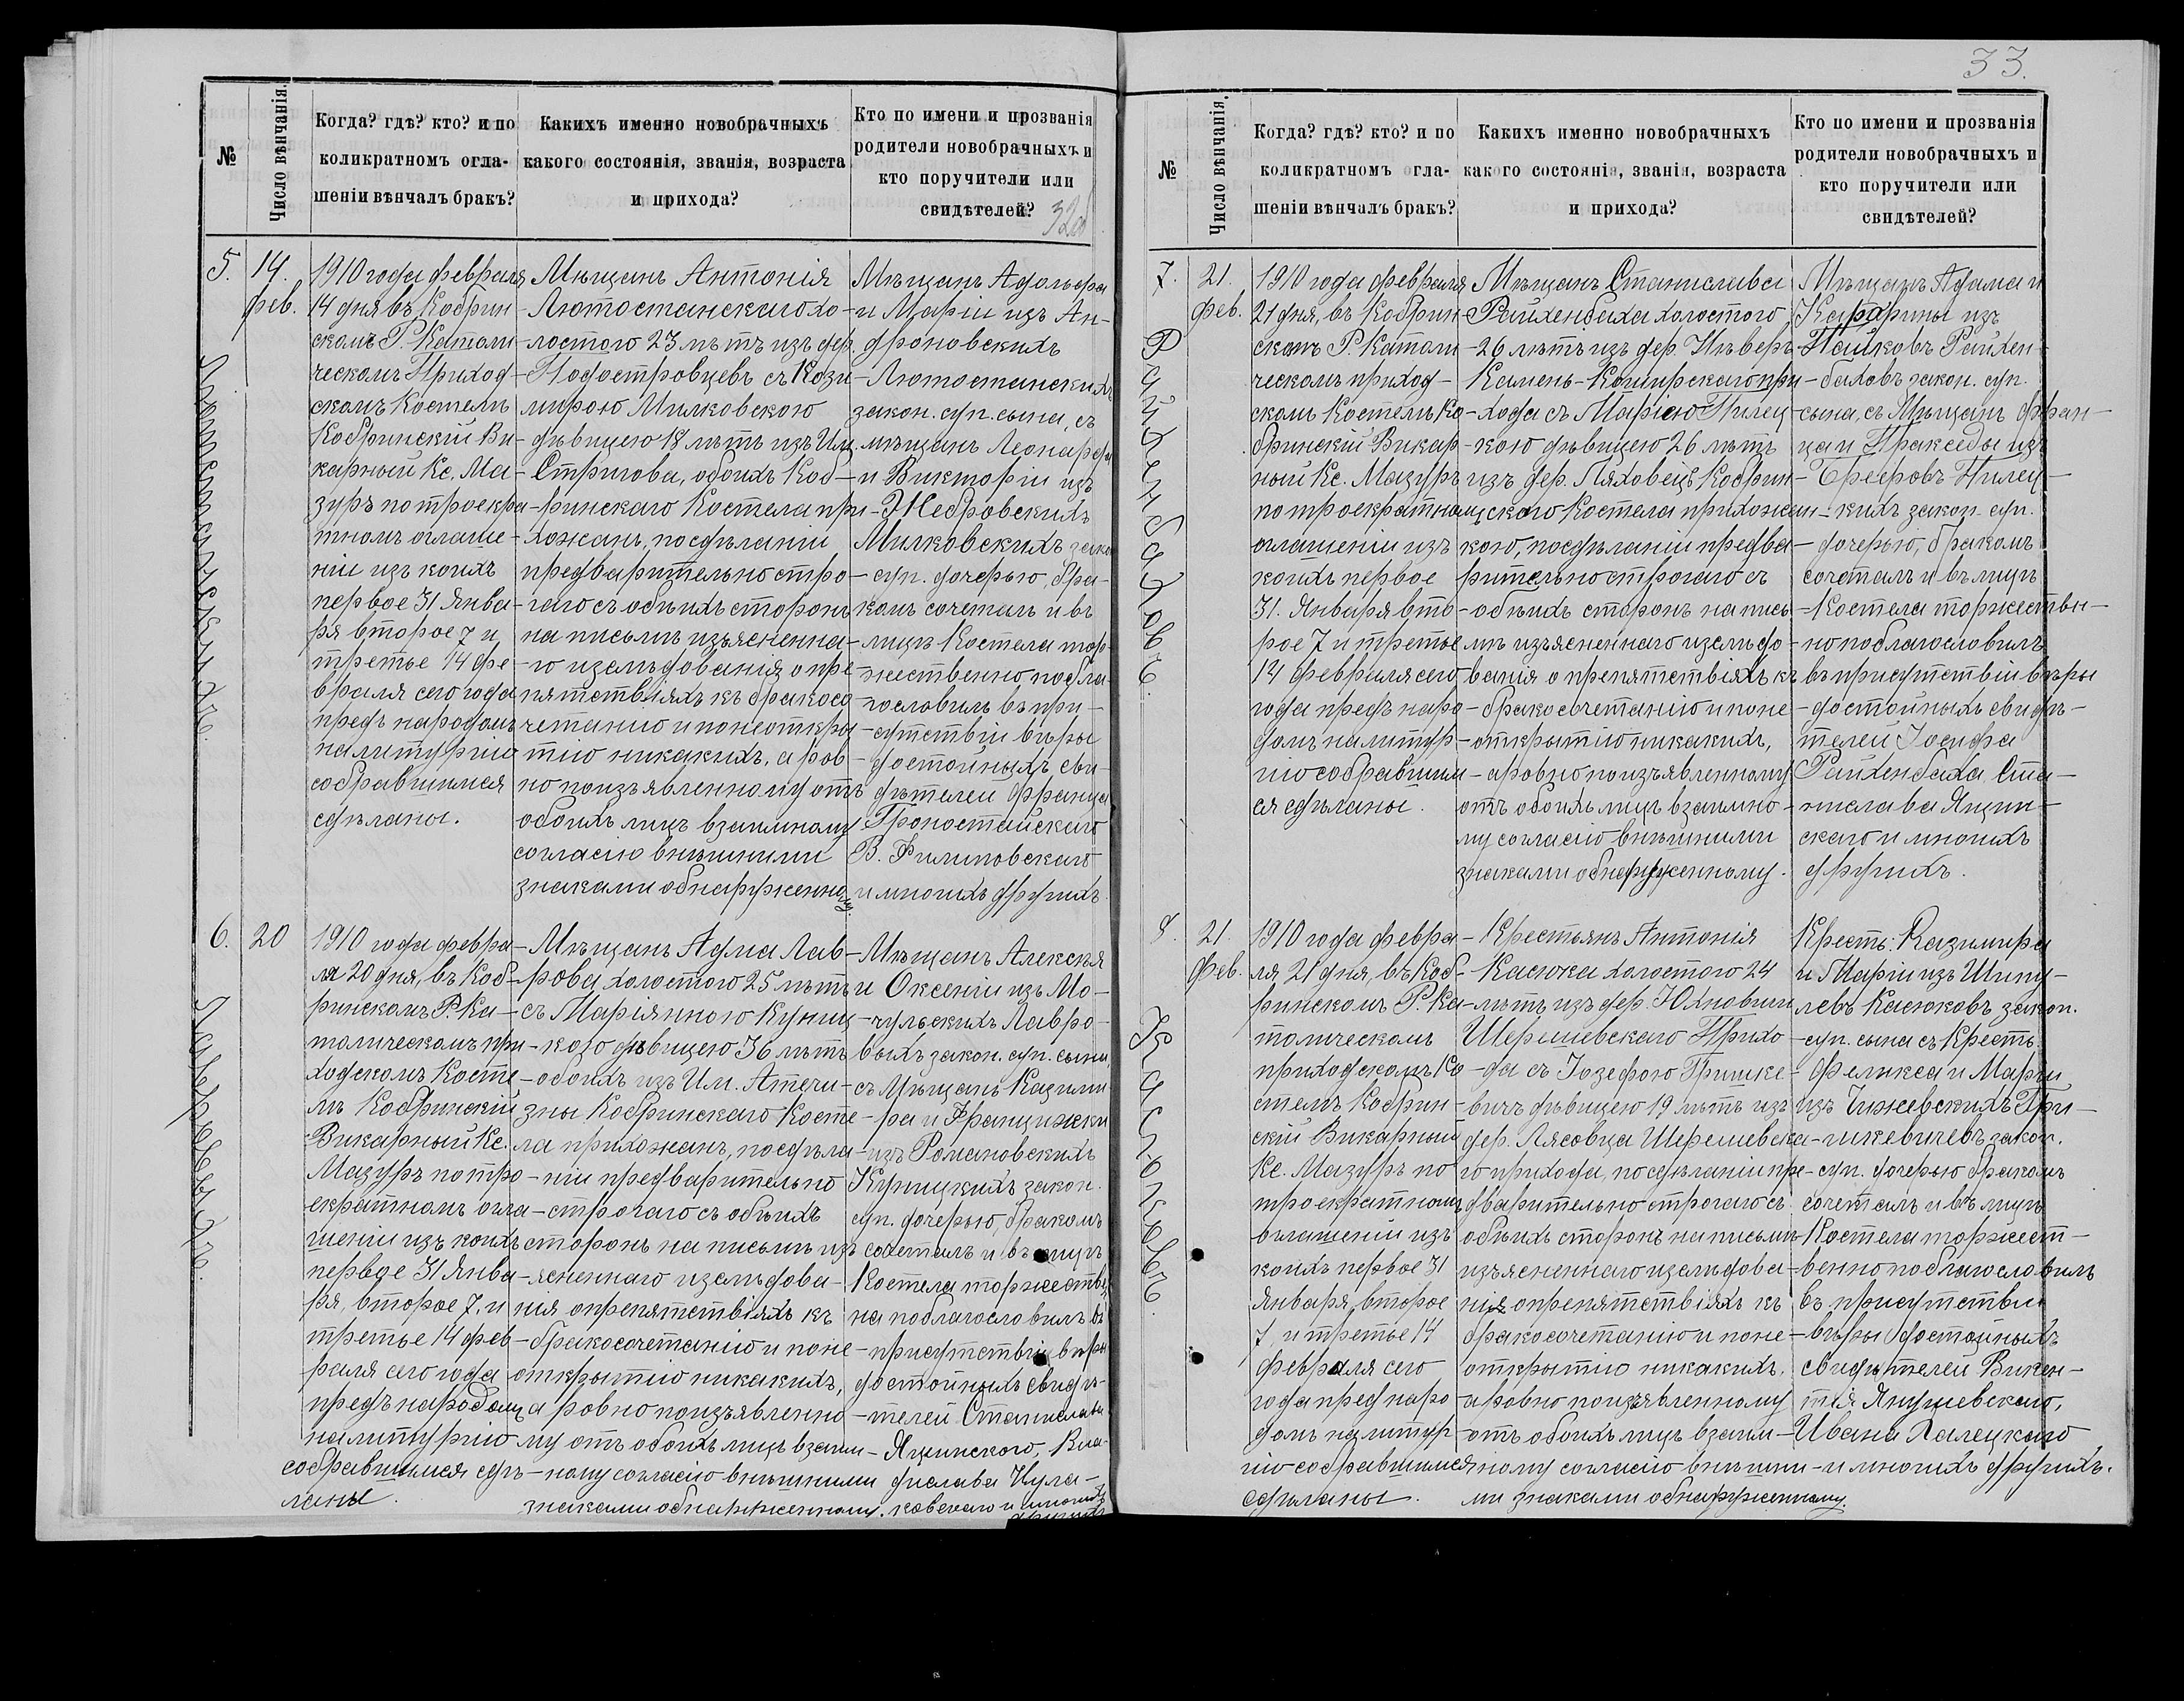 32об
№
Число вѣнчанія.
Когда? гдѣ? кто? и по
коликратномъ огла-
шеніи вѣнчалъ бракъ?
Какихъ именно новобрачныхъ
какого состоянія, званія, возраста
и прихода?
Кто по имени и прозванія
родители новобрачныхъ и
кто поручители или
свидѣтелей?
5.
14.
фев.
Лютостанскихъ.
1910 года февраля
14 дня въ Кобрин-
скомъ Р. Катали-
ческомъ Приход-
скомъ Костелѣ
Кобринскій Ви-
карный Кс. Ма-
зуръ по троекра-
тномъ оглаше-
ніи изъ коихъ
первое 31 Янва-
ря второе 7 и
третье 14 фе-
враля сего года
предъ народомъ
на литургію
собравшимся
сдѣланы.
Мѣщанъ Антонія
Лютостанскаго хо-
лостого 23 лѣтъ изъ дер.
Подостровцевъ съ Кази-
мирою Милковскою
дѣвицею 18 лѣтъ изъ Им.
Стригова, обоихъ Коб-
ринскаго Костела при-
хожанъ, по сдѣланіи
предварительно стро-
гаго съ обѣихъ сторонъ
на письмѣ изъясненна-
го изслѣдованія о пре-
пятствіяхъ къ бракосо-
четанію и по неоткры-
тію никакихъ, а ров-
но по изъявленному отъ
обоихъ лицъ взаимному
согласію внѣшними
знаками обнаруженному.
Мѣщанъ Адольфа
и Маріи изъ Ан-
дроновскихъ
Лютостанскихъ
закон. суп. сына, съ
мѣщанъ Леонарда
и Викторіи изъ
Жебровскихъ
Милковскихъ зако.
суп. дочерью, бра-
комъ сочеталъ и въ
лицѣ Костела тор-
жественно побла-
гословилъ въ при-
сутствіи вѣры
достойныхъ сви-
дѣтелей Франца
Гроностайскаго
В. Филиповскаго
и многихъ другихъ.
6.
20
Лавровыхъ.
1910 года февра-
ля 20 дня, въ Коб-
ринскомъ Р. Ка-
толическомъ при-
ходскомъ Косте-
лѣ Кобринскій
Викарный Кс.
Мазуръ по тро-
екратномъ огла-
шеніи изъ коихъ
первое 31 Янва-
ря, второе 7, и
третье 14 фев-
раля сего года
предъ народомъ
на литургію
собравшимся сдѣ-
ланы.
Мѣщанъ Адма Лав-
рова холостого 25 лѣтъ
съ Маріянною Куниц-
кою дѣвицею 36 лѣтъ
обоихъ изъ Им. Атечи-
зны Кобринскаго Косте-
ла прихожанъ, по сдѣла-
ніи предварительно
строгаго съ обѣихъ
сторонъ на письмѣ изъ
ясненнаго изслѣдова-
нія о препятствіяхъ къ
бракосочетанію и поне-
открытію никакихъ,
а ровно по изъявленно-
му отъ обоихъ лицъ взаим-
ному согласію внѣшними
знаками обнаруженному.
Мѣщанъ Алексѣя
и Оксеніи изъ Мо-
чульскихъ Лавро-
выхъ закон. суп. сына,
съ Мѣщанъ Казими-
ра и Францижски
изъ Романовскихъ
Куницкихъ закон.
суп. дочерью, бракомъ
сочеталъ и въ лицѣ
Костела торжествен-
на поблагословилъ въ
присутствіи вѣры
достойныхъ свидѣ-
телей Станислава
Яцинского, Вла-
дислава Чула-
ковскаго и многихъ
другихъ
33.
№
Число вѣнчанія.
Когда? гдѣ? кто? и по
коликратномъ огла-
шеніи вѣнчалъ бракъ?
Какихъ именно новобрачныхъ
какого состоянія, званія, возраста
и прихода?
Кто по имени и прозванія
родители новобрачныхъ и
кто поручители или
свидѣтелей?
7.
21.
фев.
Райхенбаховъ.
1910 года февраля
21 дня, въ Кобрин-
скомъ Р. Катали-
ческомъ приход-
скомъ Костелѣ Ко-
бринскій Викар-
ный Кс. Мазуръ
по троекратномъ
оглашеніи изъ
коихъ первое
31. Января вто-
рое 7 и третье
14 февраля сего
года предъ наро-
домъ на литур-
гію собравшим-
ся сдѣланы.
Мѣщанъ Станислава
Райхенбаха холостого
26 лѣтъ изъ дер. Нѣверъ
Камень-Коширскаго при-
хода съ Маріею Пилец-
кою дѣвицею 26 лѣтъ
изъ дер. Ляховецъ Кобрин-
скаго Костела прихожан-
кою, по сдѣланіи предва-
рительно строгаго съ
обѣихъ сторонъ на пись-
мѣ изъясненнаго изслѣдо-
ванія о препятствіяхъ къ
бракосочетанію и поне-
открытію никакихъ,
а ровно по изъявленному
отъ обоихъ лицъ взаимно-
му согласію внѣшними
знаками обнаруженному.
Мѣщанъ Адама и
Катарины изъ
Пашковъ Райхен-
баховъ закон. суп.
сына, съ Мѣщанъ Фран-
ца и Пракседы изъ
Брееровъ Пилец-
кихъ закон. суп.
дочерью, бракомъ
сочеталъ и въ лицѣ
Костела торжествен-
но поблагословилъ
въ присутствіи вѣры
достойныхъ свидѣ-
телей Іосифа
Райхенбаха, Ста-
нислава Яцин-
скаго и многихъ
другихъ.
8.
21.
Фев.
Касюковъ.
1910 года февра-
ля 21 дня, въ Коб-
ринскомъ Р. Ка-
толическомъ
приходскомъ Ко-
стелѣ Кобрин-
скій Викарный
Кс. Мазуръ по
троекратномъ
оглашеніи изъ
коихъ первое 31
Января, второе
7, и третье 14
февраля сего
года пред наро-
домъ на литур-
гію собравшимся
сдѣланы.
Крестьянъ Антонія
Касюка холостого 24
лѣтъ изъ дер. Юхновичи
Шерешевскаго Прихо-
да съ Іозефою Гришке-
вичъ дѣвицею 19 лѣтъ изъ
дер. Лясовца Шерешевска-
го прихода, по сдѣланіи пре-
дварительно строгаго съ
обѣихъ сторонъ на письмѣ
изъясненнаго изслѣдова-
нія о препятствіяхъ къ
бракосочетанію и поне-
открытію никакихъ,
а ровно по изъявленному
отъ обоихъ лицъ взаим-
ному согласію внѣшни-
ми знаками обнаруженному.
Крестъ. Казимира
и Маріи изъ Шипу-
левъ Касюковъ закон.
суп. сына съ Крестъ.
Феликса и Маріи
изъ Чижевскихъ Гри-
шкевичевъ закон.
суп. дочерью бракомъ
сочеталъ и въ лицѣ
Костела торжест-
венно поблагословилъ
въ присутствіи
вѣры достойныхъ
свидѣтелей Викен-
тія Янушевскаго,
Ивана Халецкаго
и многихъ другихъ.